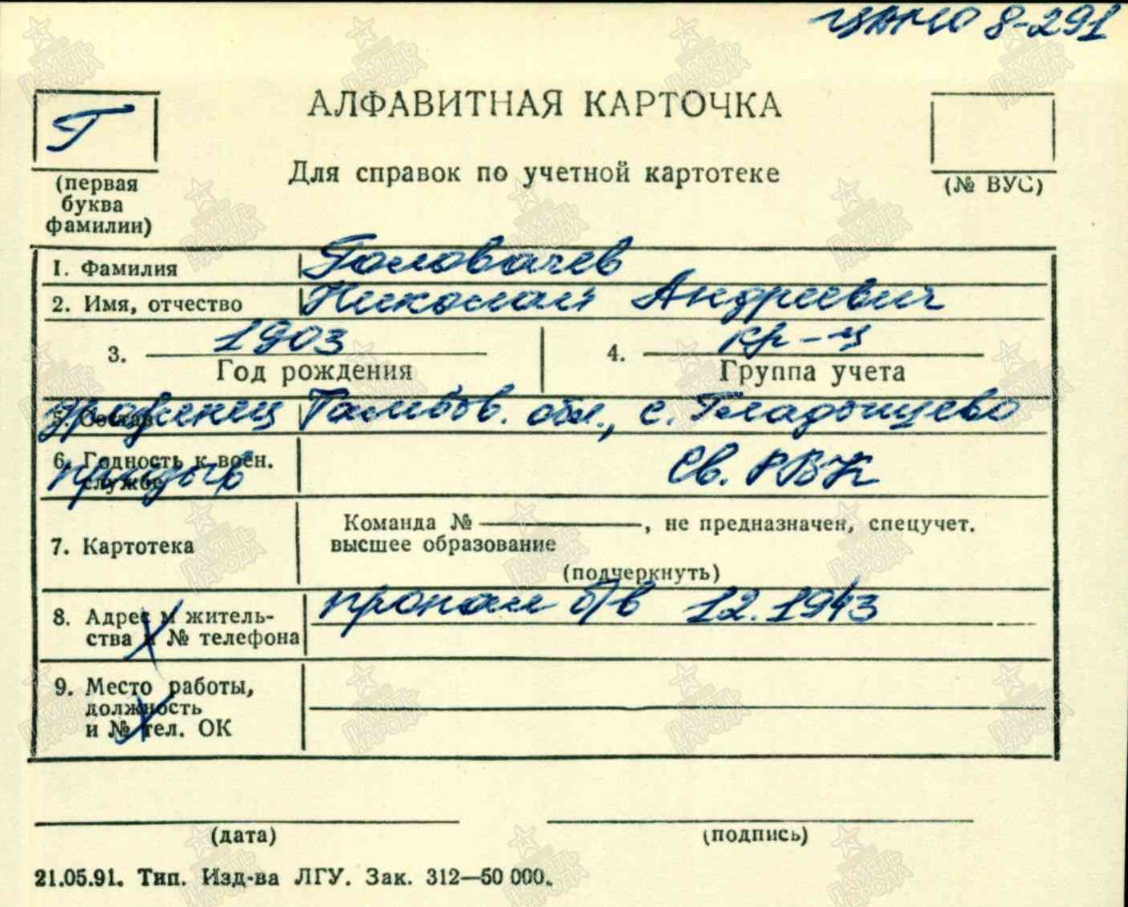 ЦАМО 8-291
Г
АЛФАВИТНАЯ КАРТОЧКА
Для справок по учетной картотеке
(первая
буква
фамилии)
(№ ВУС)
1. Фамилия Головачев
2. Имя, отчество Николай Андреевич
3. 1903
Год рождения
4. кр-ц
Группа учета
5. Состав
уроженец Тамбов. обл., с. Гладышево
6. Годность к воен.
службе
призыв Св. РВК
7. Картотека
Команда № , не предназначен, спецучет.
высшее образование
(подчеркнуть)
8. Адрес м житель-
ства и № телефона
пропал б/в 12.1943
9. Место работы,
должность
и № тел. ОК
(дата)
(подпись)
21.05.91. Тип. Изд-ва ЛГУ. Зак. 312—50 000.
ПАМЯТЬ НАРОДА